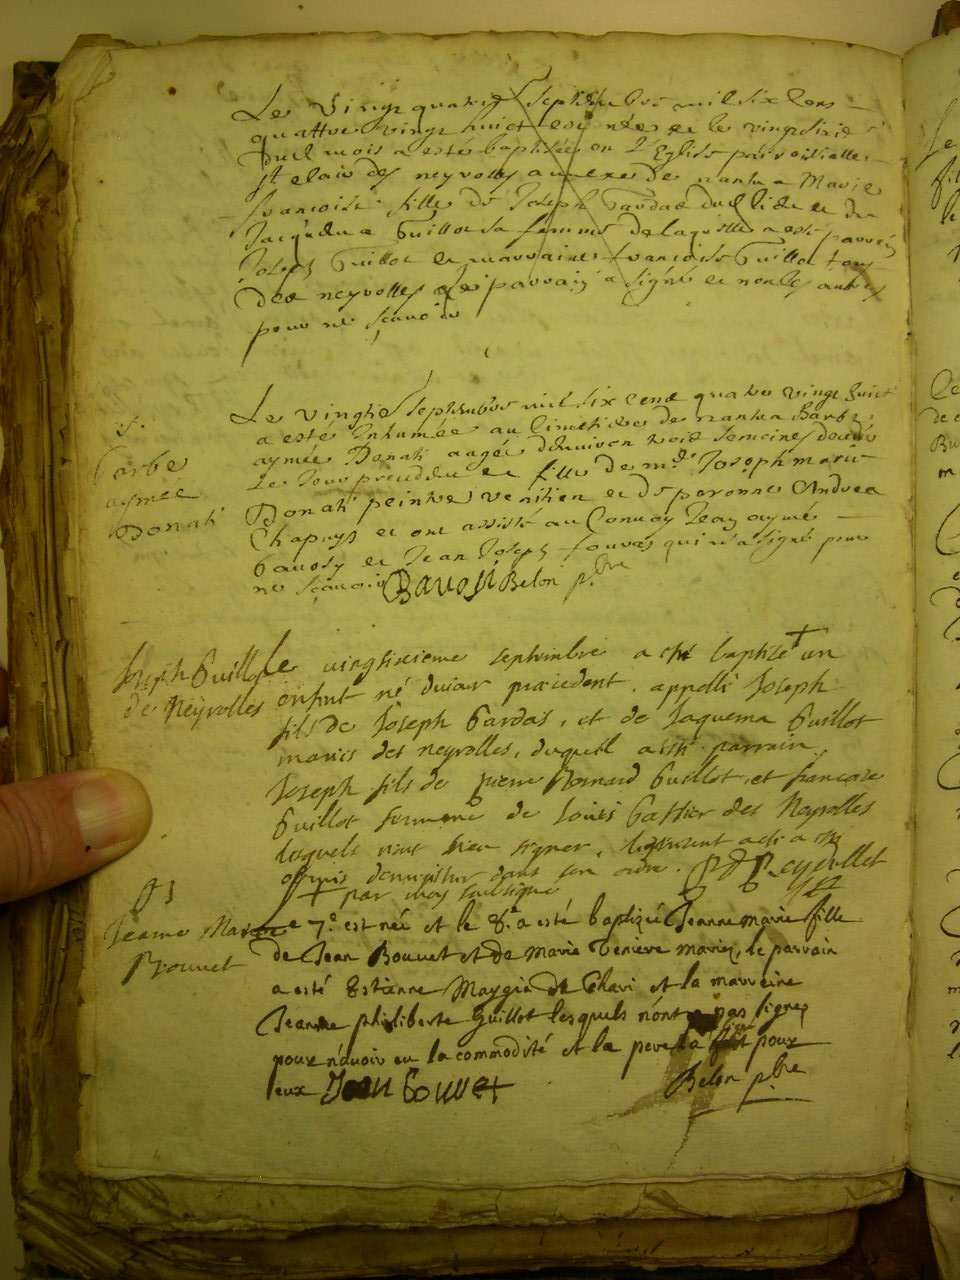 Le vingt quatre septembre mil six cens
quattre vingt huict est née et le vingt sixie
dud mois a esté baptisée en l'Eglise parroissialle
st clair des neyrolles annexe de nantua Marie
francoise fille de Joseph Gardas dud lieu et de
Jacquema Guillot sa femme de laquelle a esté parrein
Joseph Guillot et marraine francoise Guillot tous
des neyrolles led parrain a signé et non les autres
pour ne scavoir
Le vingtie septembre mil six cens quatre vingt huict
a esté Inhumée au Cimetière de nantua Barbe
aymée Donati aagée d'environ trois semeines decedée
Le Jour precedent et fille de mre Joseph marie
Donati peintre venitien et de peronne Andrea
Chapuys et ont assisté au Convoy Jean aymé
Bavosy et Jean Joseph fouras qui n'a signé pour
ne scavoir Bavosi Belon pbre
S.
Barbe
aymée
Donati
Joseph Guillot
de Neyrolles
Le vingtsixieme septembre a esté baptizé un
enfant né du jour precedent, appellé Joseph
fils de Joseph Gardas, et de Jaquema Guillot
mariés des neyrolles, duquel a esté parrain
Joseph fils de pierre Bernard Guillot, et francoise
Guillot femme de Louis Gastier des Neyrolles
lesquels n'ont sceu signer, le present acte a esté
par moy soubsigné
Jeanne Marie
Bouvet
Le 7e est née et le 8e a esté baptizée Jeanne marie fille
de Jean Bouvet et de Marie Teniere mariez, le parrain
a esté Estienne Maygia de Chavi et la marreine
Jeanne philiberte Guillot lesquels n'ont pas signez
pour n'avoir eu la commodité et le pere l'a fait pour
eux Jean Bouvet Belon pbre